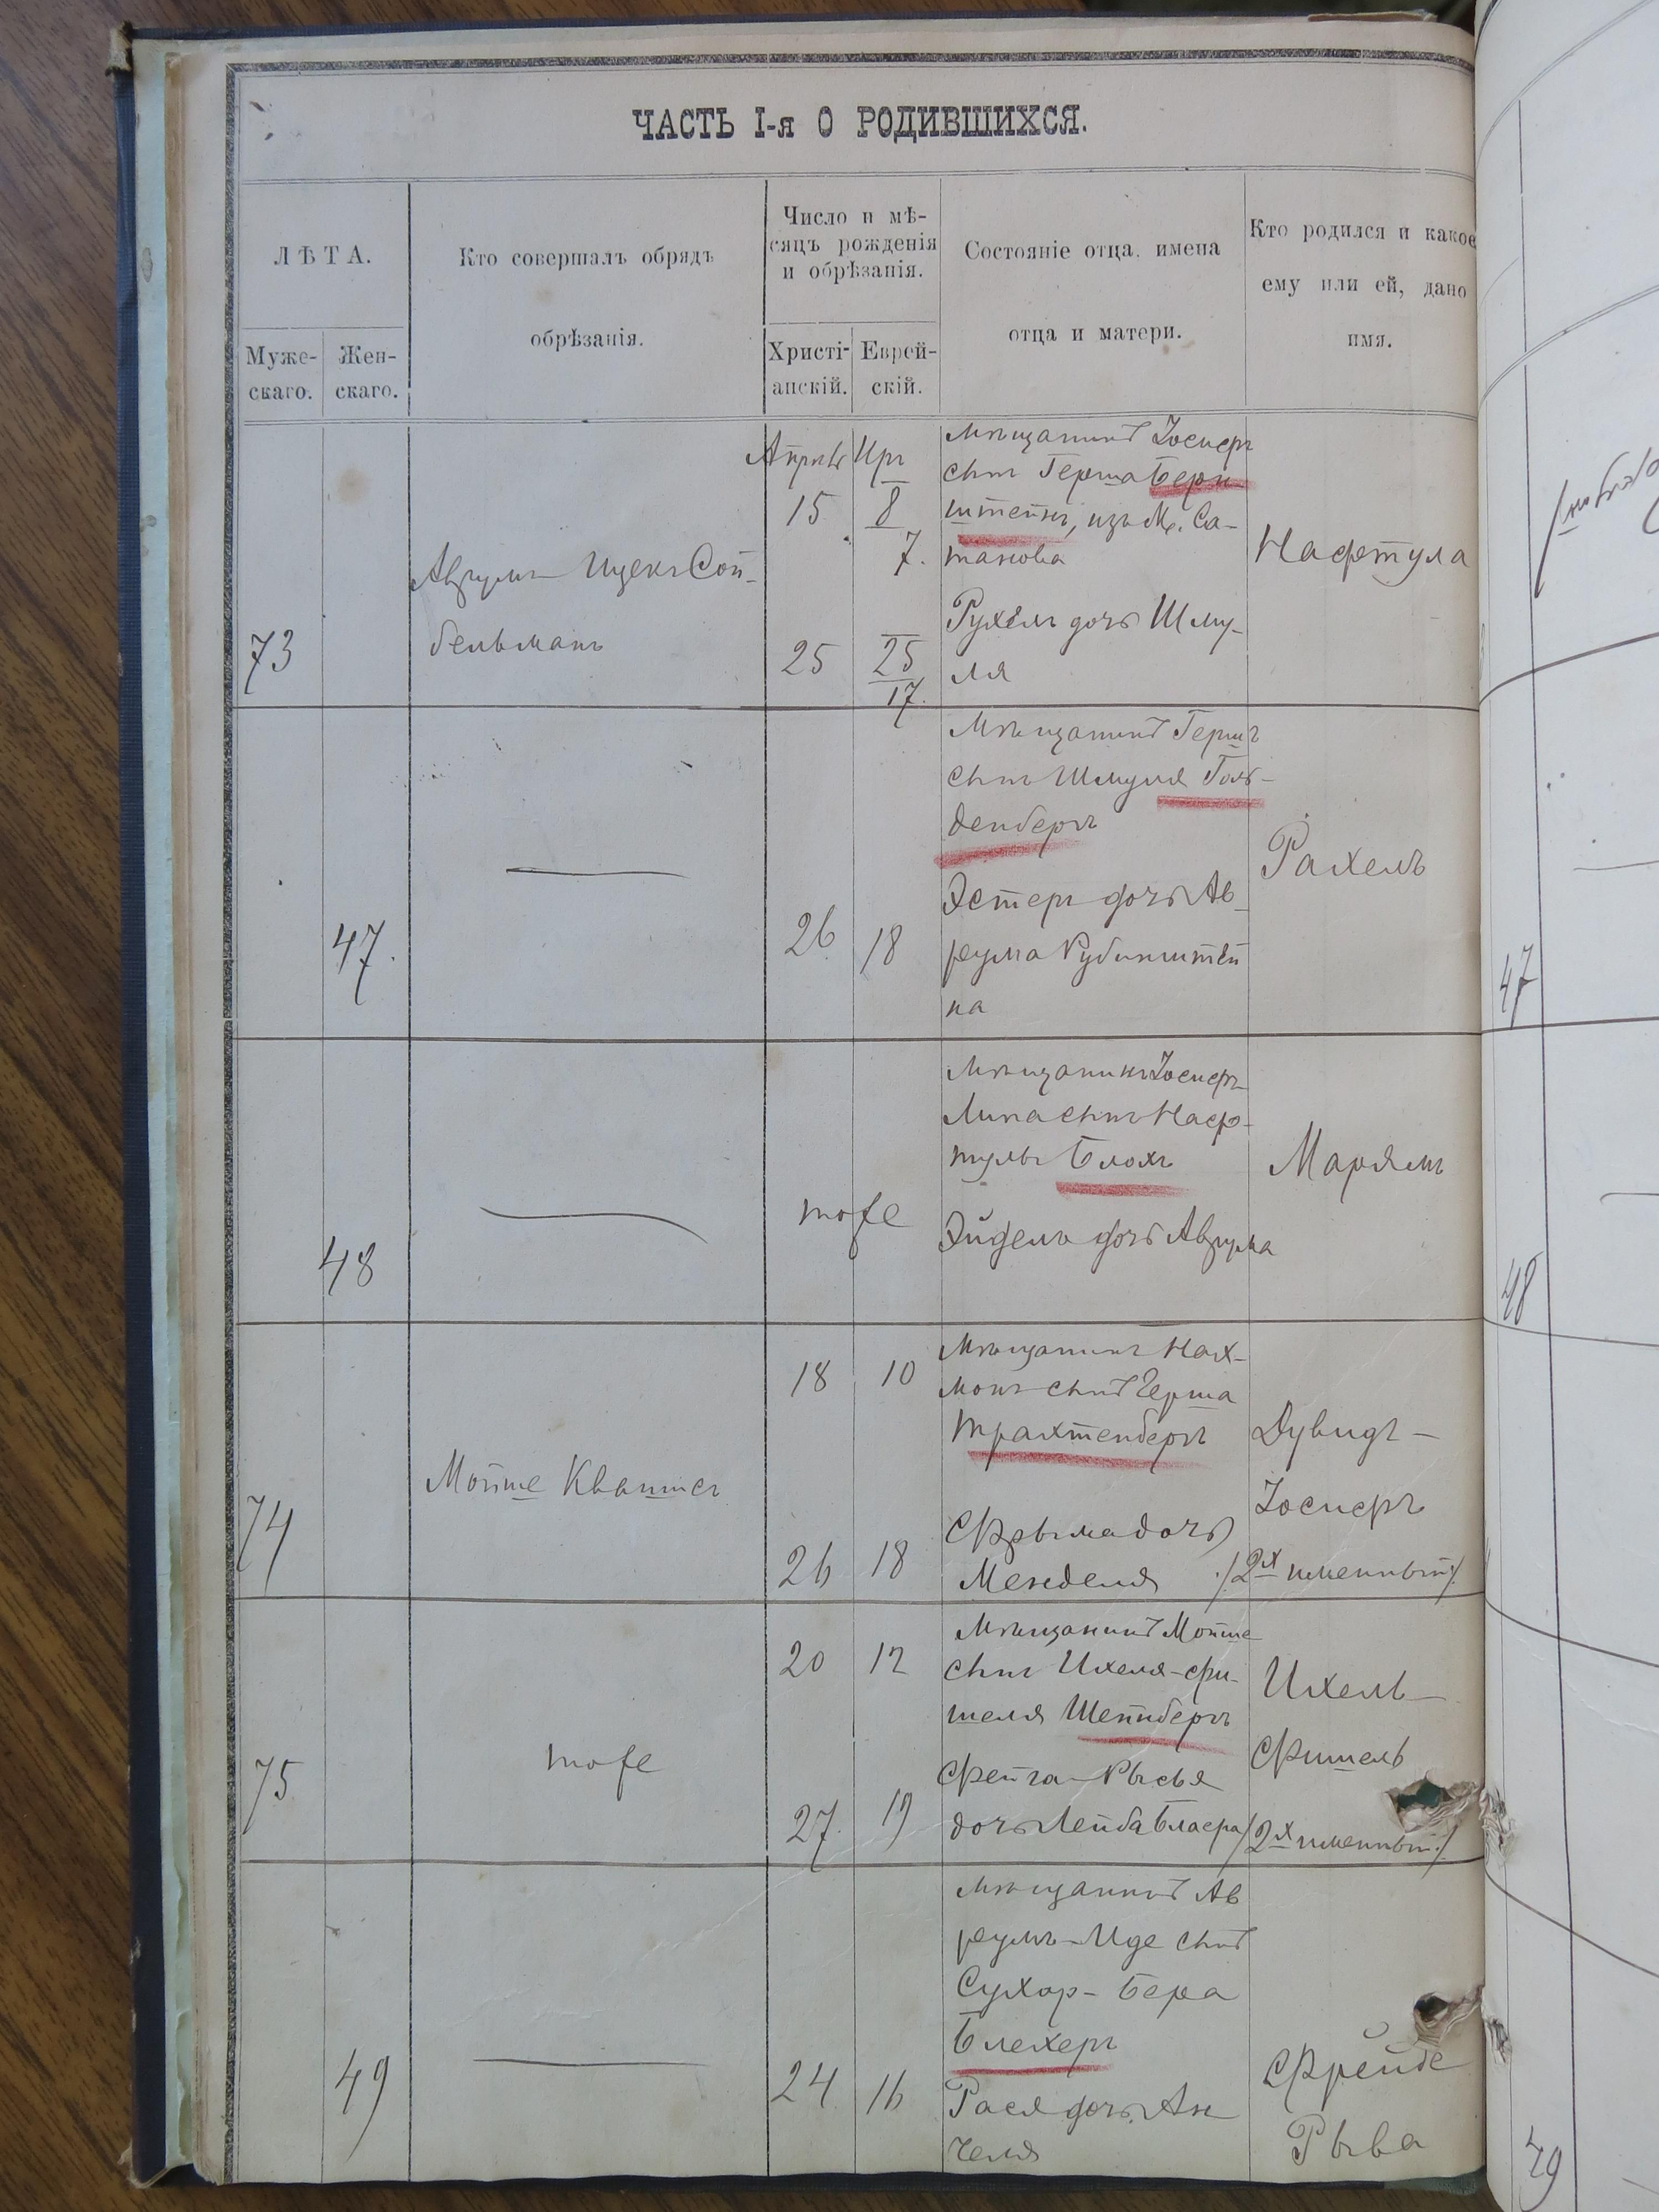 ЧАСТЬ I-я О РОДИВШИХСЯ.
ЛѢТА.
Муже-
скаго.
Жен-
скаго.
Кто совершалъ обрядъ
обрѣзанія.
Число и мѣ-
сяцъ рожденія
и обрѣзанія.
Христі-
анскій.
Еврей-
скій.
Состояніе отца, имена
отца и матери.
Кто родился и какое
ему или ей, дано
имя.
73
Аврумъ Ицекъ Сой-
бельманъ
Апрѣль
15
25
Иръ
8
7.
25
17.
Мѣщанинъ Іосифъ
сынъ Герша Берн
штейнъ, изъ М. Са-
танова
Рухель дочь Шму-
ля
Нафтула
47.
26
18
Мѣщанинъ Гершъ
сынъ Шмуля Голь-
денбергъ
Эстеръ дочь Ав-
рума Рубинштей
на
Рахель
48
тоже
Мѣщанинъ Іосифъ
Липа сынъ Наф-
тулы Блохъ
Эйдель дочь Аврума
Марямъ
74
Мойше Квашсъ
18
26
10
18
Мѣщанинъ Нах-
монъ сынъ Герша
Трахтенбергъ
Фрыма дочь
Менделя
Дувидъ-
Іосифъ
/2х именный/
75
тоже
20
27.
12
19
Мѣщанинъ Мойше
сынъ Ихеля-Фи-
шеля Шейнбергъ
Фейга-Рысья
дочь Лейба Бласра
Ихель-
Фишель
/2х именный/
49
24
16
Мѣщанинъ Ав
румъ-Иде сынъ
Сухор-Бера
Блехеръ
Рася дочь Ан
челя
Фрейде
Рыва
47
48
49